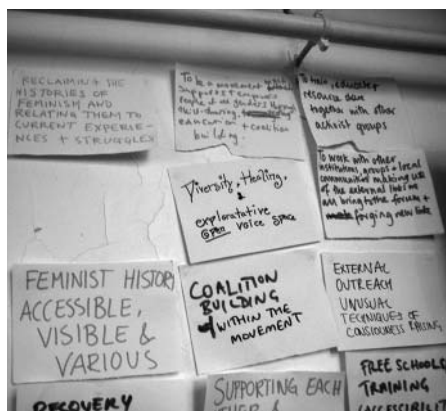 RECLAIMING THE
HISTORIES OF
FEMINISM AND
RELATING THEM TO
CURRENT EXPERIE-
NCES + STRUGGLES
To be a movement which
supports + empowers
people of all genders through
skill-sharing,
education + coalition
building.
To train, educate
resource share
together with other
activist groups
Diversity, Healing,
&
explorative
open voice space
To work with other
institutions, groups + local
communities making use
of the external links we
all bring to the forum +
forging new links
FEMINIST HISTORY
ACCESSIBLE,
VISIBLE &
VARIOUS
COALITION
BUILDING
WITHIN THE
MOVEMENT
EXTERNAL
OUTREACH
UNUSUAL
TECHNIQUES OF
CONSIOUSNESS RAISING
RECOVERY
SUPPORTING EACH
FREE SCHOOLS
TRAINING